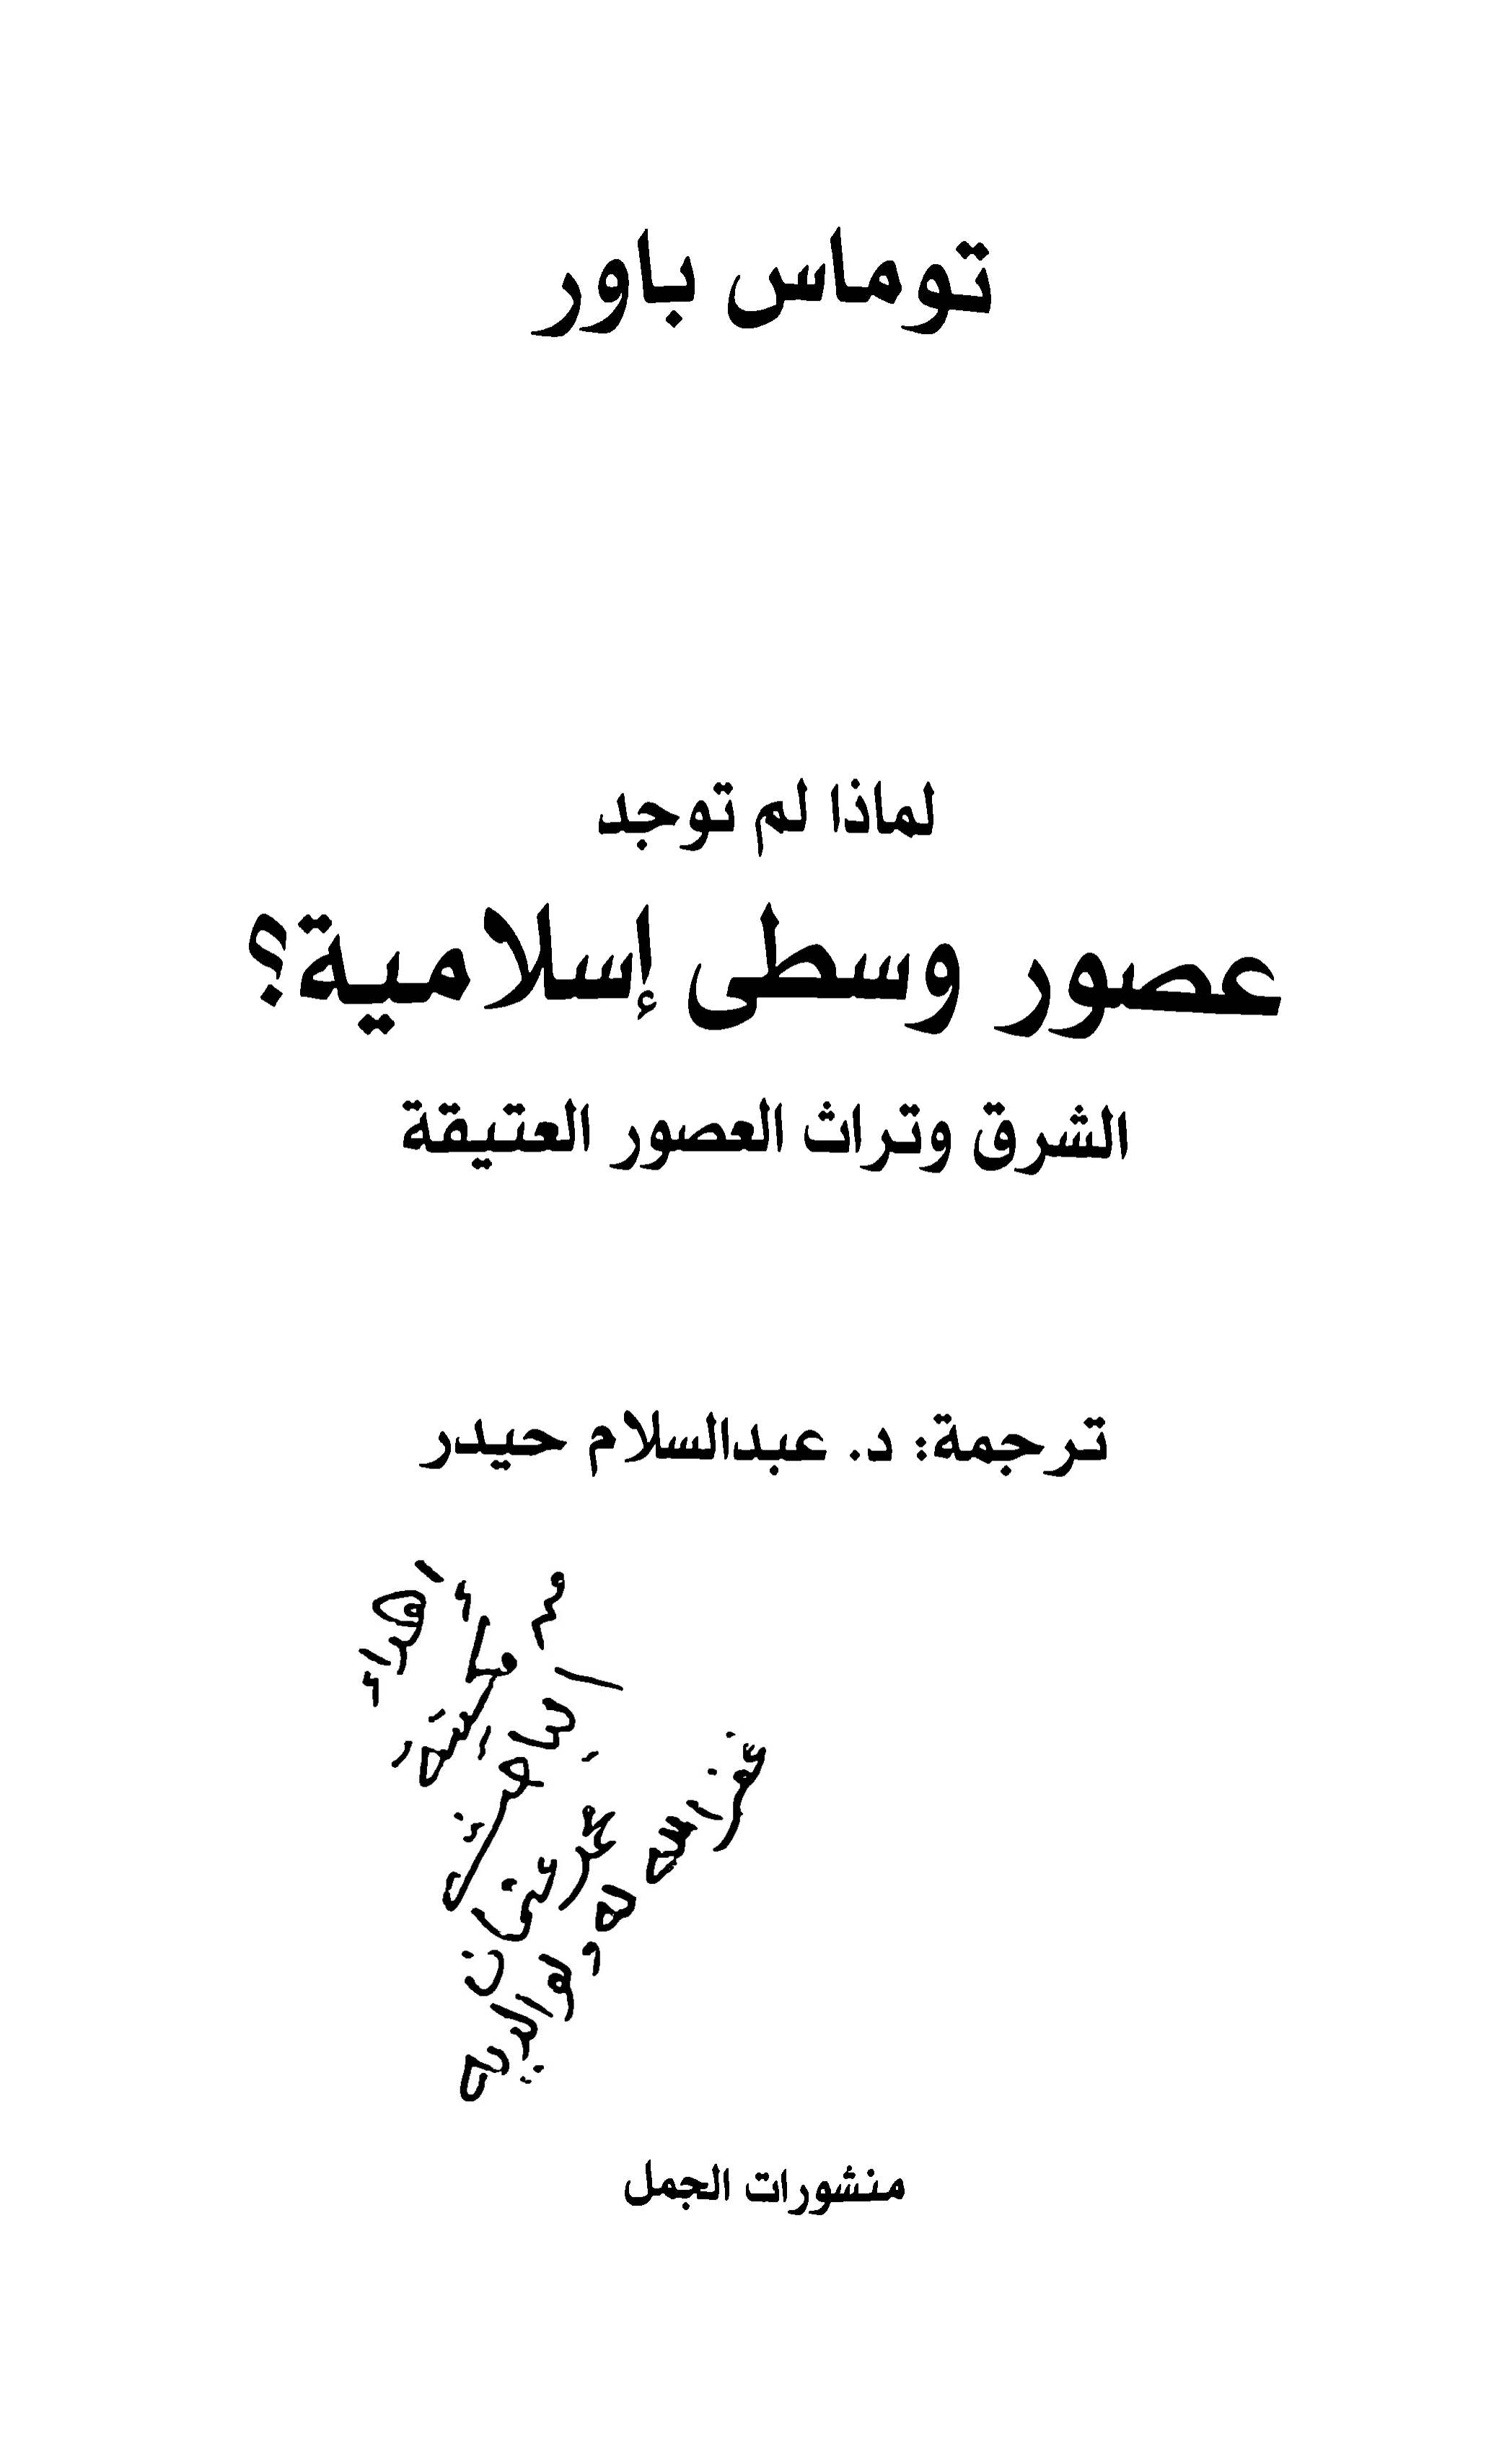 توماس باور
لماذا لم توجد
عصور وسطى إسلامية؟
الشرق وتراث العصور العتيقة
ترجمة: د. عبدالسلام حيدر
غفر الله له ولوالديه
منشورات الجمل